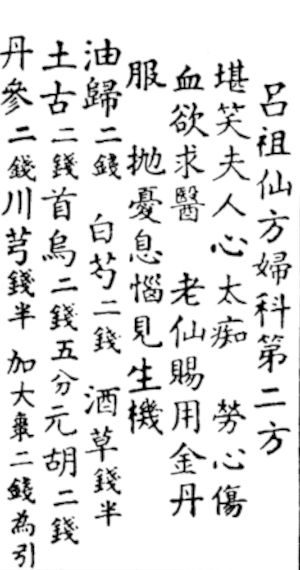 呂祖仙方婦科第二方
堪笑夫人心太痴　勞心傷
血欲求醫　老仙賜用金丹
服　拋憂息惱見生機
油歸二錢　白芍二錢　酒草錢半
土古二錢首烏二錢五分元胡二錢
丹參二錢川芎錢半　加大棗二錢為引